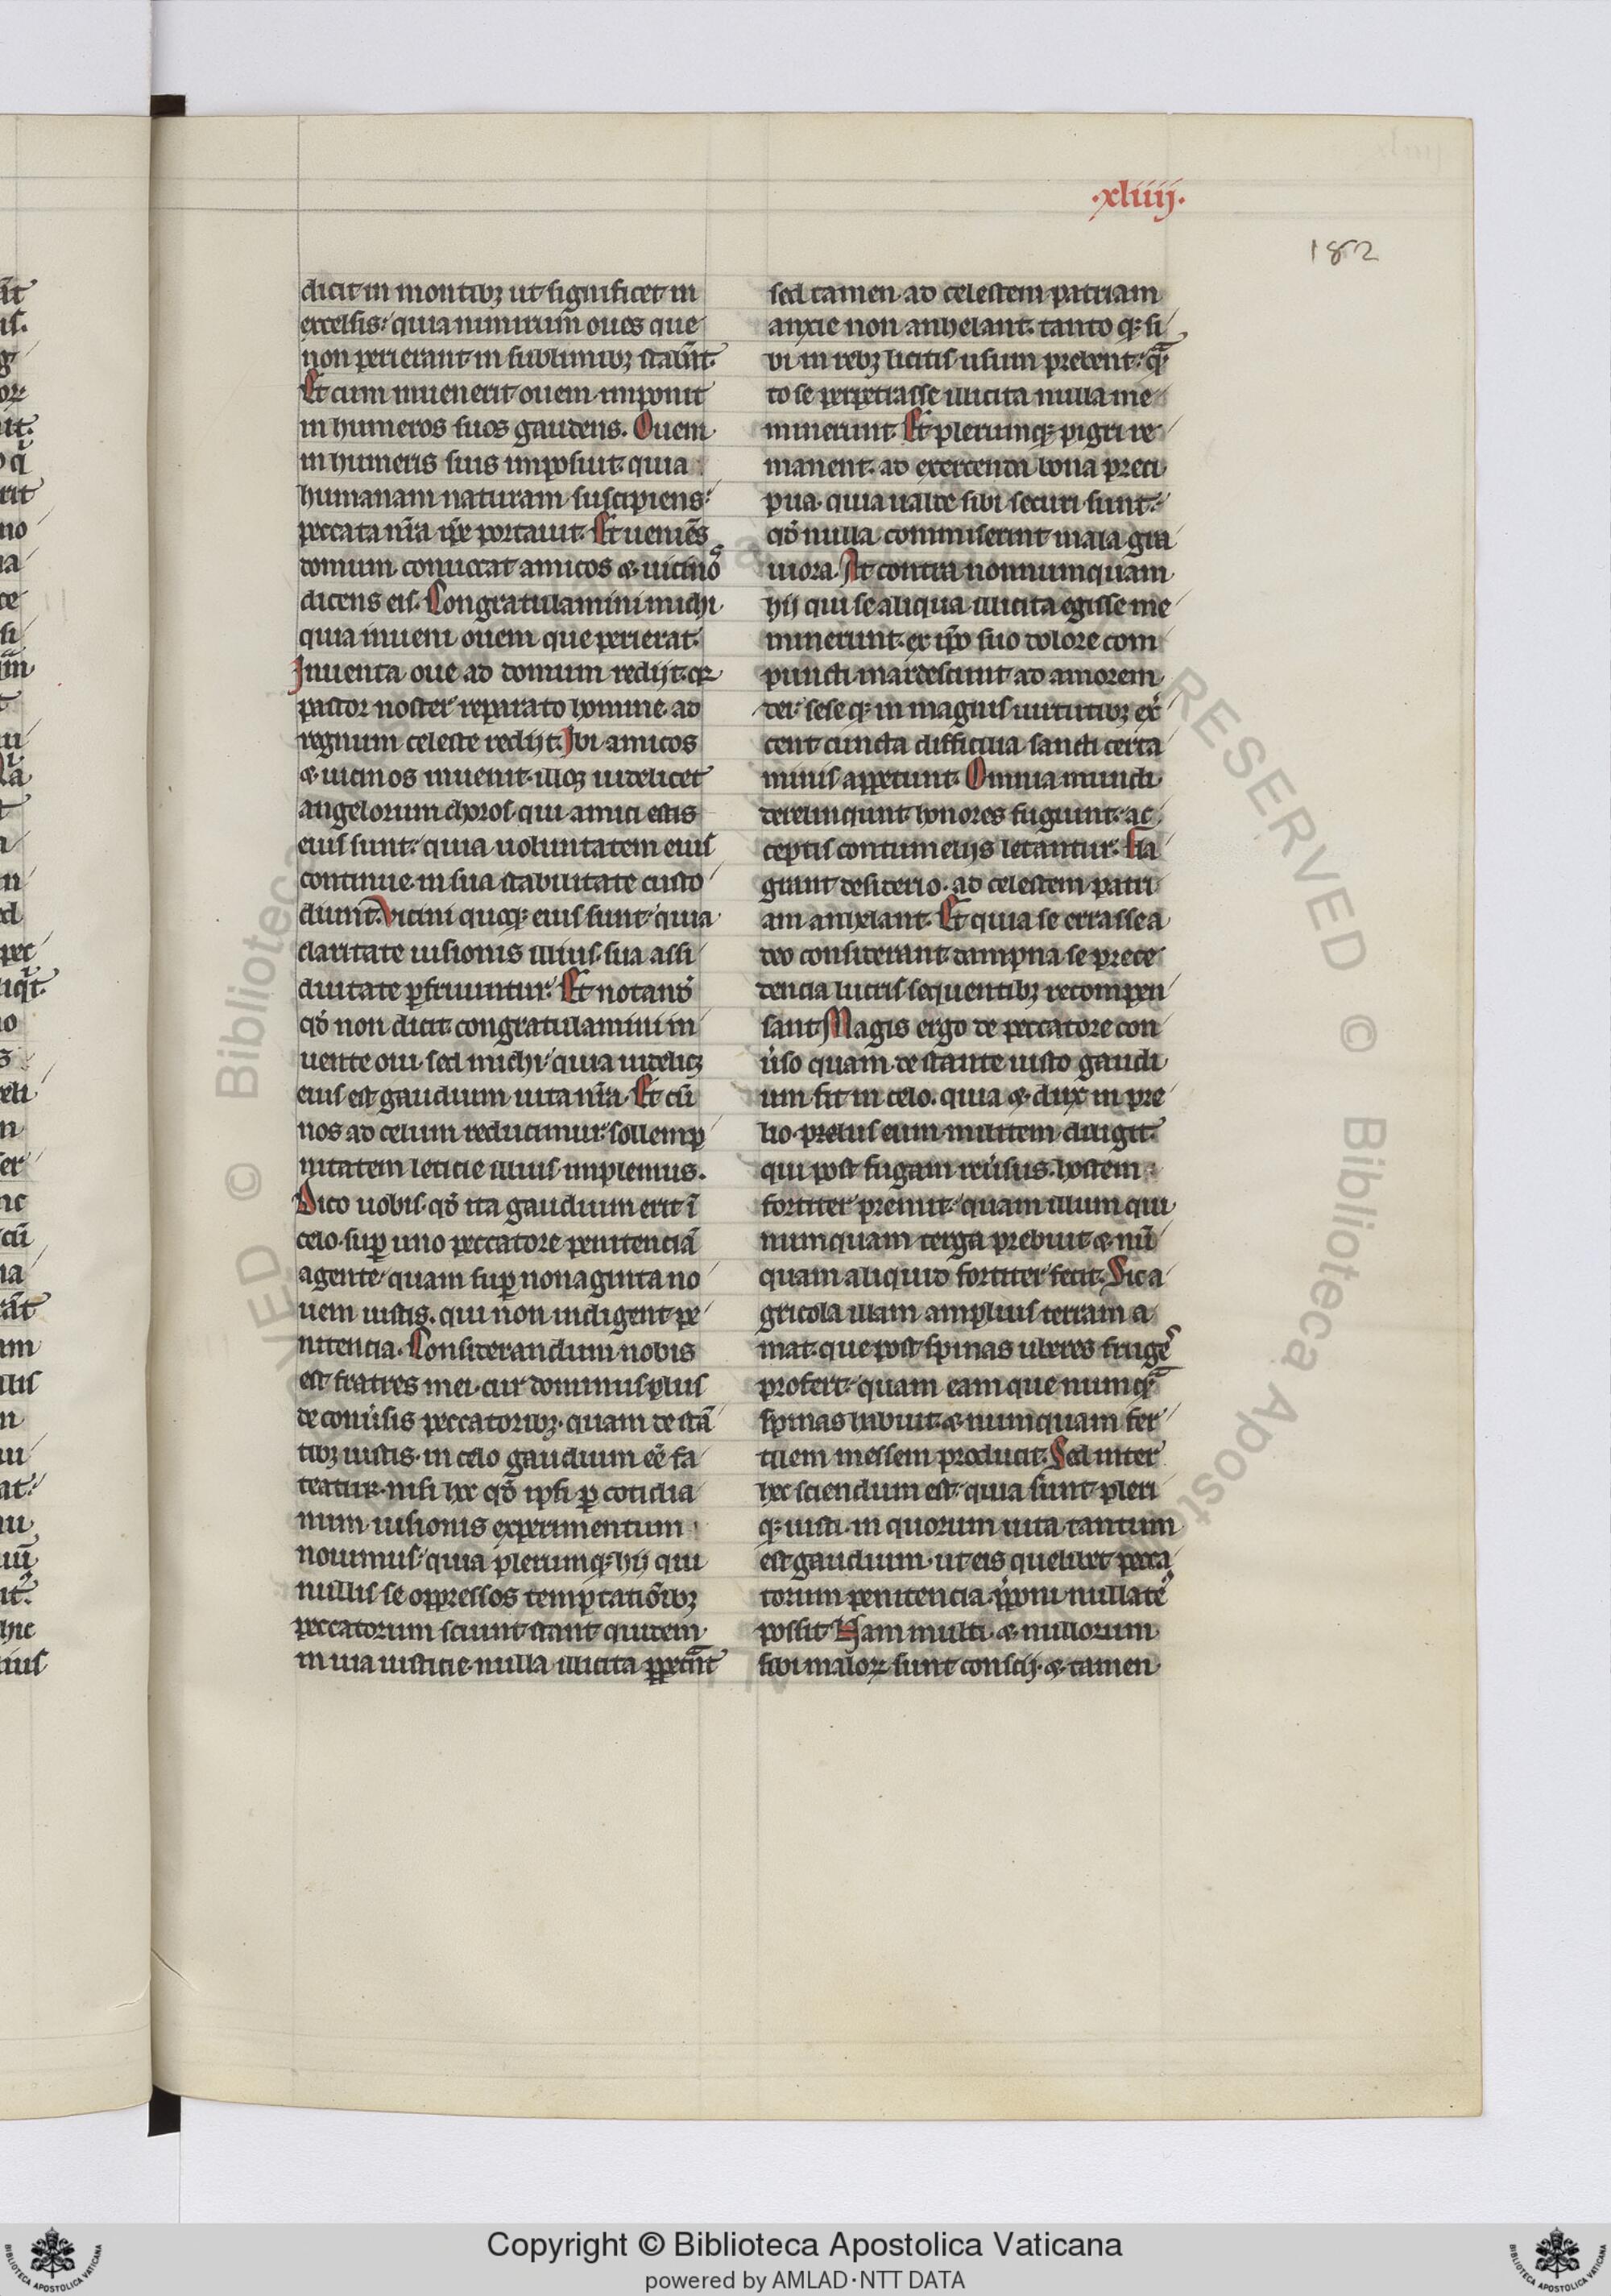 ·xliiij·
182
dicit in montibꝫ ut significet in
excelsis· quia nimirum̄ oues que
non perierant in sublimibꝫ stabāt.
Et cum inuenerit ouem imponit
in humeros suos gaudens. Ouem
in humeris suis imposuit· quia
humanam naturam suscipiens·
peccata nr̄a ip̄e portauit. Et ueniēs
domum conuocat amicos ⁊ uicinoˢ
dicens eis. Congratulamini michi
quia inueni ouem que perierat.
Inuenta oue ad domum redijt· qꝛ
pastor noster reparato homine· ad
regnum celeste redijt. Ibi amicos
⁊ uicinos inuenit· illos uidelicet
angelorum choros· qui amici eius
eius sunt· quia uoluntatem eius
continue in sua stabilitate custo
diunt. Vicini quoqꝫ eius sunt· quia
claritate uisionis illius· sua assi
duitate ꝑfruuntur. Et notandū
qd̄ non dicit congratulamini in
uente oui· sed michi· quia uidelicꝫ
eius est gaudium uita nr̄a. Et cū
nos ad celum reducimur· sollemp
nitatem leticie illius implemus.
Dico uobis· qd̄ ita gaudium erit ī
celo· suꝑ uno peccatore penitenciā
agente· quam suꝑ nonaginta no
uem iustis. qui non indigent pe
nitencia. Considerandum nobis
est fratres mei· cur dominus plus
de conūsis peccatoribꝫ· quam de stā
tibꝫ iustis· in celo gaudium eē fa
teatur· nisi hoc qd̄ ipsi ꝑ cotidia
num uisionis experimentum
nouimus· quia plerumqꝫ hij qui
nullis se oppressos temptatiōibꝫ
peccatorum sciunt· stant quidem
in uia iusticie· nulla illicita ꝑpetrāt
sed tamen ad celestem patriam
anxie non anhelant. tanto qꝫ si
bi in rebꝫ licitis usum prebent· q̄ꝫ
to se perpetrasse illicita nulla me
minerunt. Et plerumqꝫ pigri re
manent· ad exercenda bona preci
pua· quia ualde sibi securi sunt·
qd̄ nulla commiserint mala gra
uiora. At contra nonnumquam
hij qui se aliqua illicita egisse me
minerunt· ex ip̄o suo dolore com
puncti inardescunt ad amorem
dei· seseqꝫ in magnis uirtutibꝫ ex̄
cent· cuncta difficilia sancti certa
minis appetunt. Omnia mundi
derelinqunt· honores fugiunt· ac
ceptis contumelijs letantur. Fla
grant desiderio· ad celestem patri
am anhelant. Et quia se errasse a
deo considerant· dampna se prece
dencia lucris sequentibꝫ recompen
sant. Magis ergo de peccatore con
ūso quam de stante iusto gaudi
um fit in celo. quia ⁊ dux in pre
lio· prelius eum militem diligit·
qui post fugam reūsus· hostem
fortiter premit· quam illum qui
numquam terga prebuit ⁊ nū
quam aliquid fortiter fecit. Sic a
gricola illam amplius terram a
mat· que post spinas uberes frugeˢ
profert· quam eam que numqᷓ
spinas habuit· ⁊ numquam fer
tilem messem producit. Sed inter
hec sciendum est· quia sunt pleri
qꝫ iusti· in quorum uita tantum
est gaudium· ut eis quelibet pecca
torum penitencia p̄poni nullatē
possit. Nam multi· ⁊ nullorum
sibi maloꝝ sunt conscij· ⁊ tamen
Copyright © Biblioteca Apostolica Vaticana
powered by AMLAD·NTT DATA